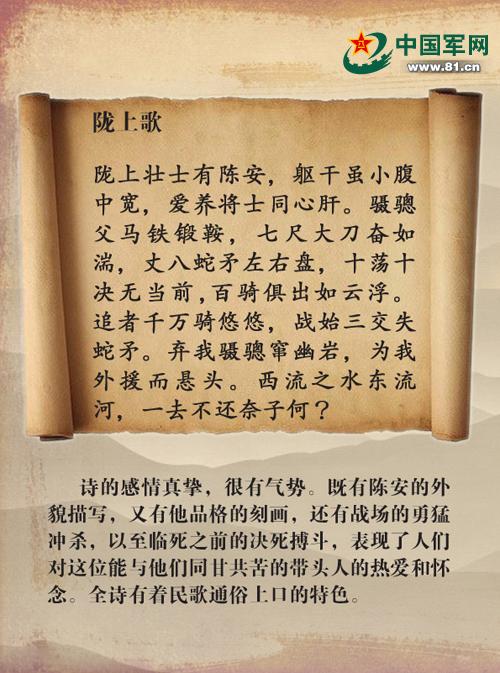 中国军网
www.81.cn
陇上歌
陇上壮士有陈安，躯干虽小腹
中宽，爱养将士同心肝。骣骢
父马铁锻鞍，七尺大刀奋如
湍，丈八蛇矛左右盘，十荡十
决无当前，百骑俱出如云浮。
追者千万骑悠悠，战始三交失
蛇矛。弃我骣骢窜幽岩，为我
外援而悬头。西流之水东流
河，一去不还奈子何？
诗的感情真挚，很有气势。既有陈安的外
貌描写，又有他品格的刻画，还有战场的勇猛
冲杀，以至临死之前的决死搏斗，表现了人们
对这位能与他们同甘共苦的带头人的热爱和怀
念。全诗有着民歌通俗上口的特色。